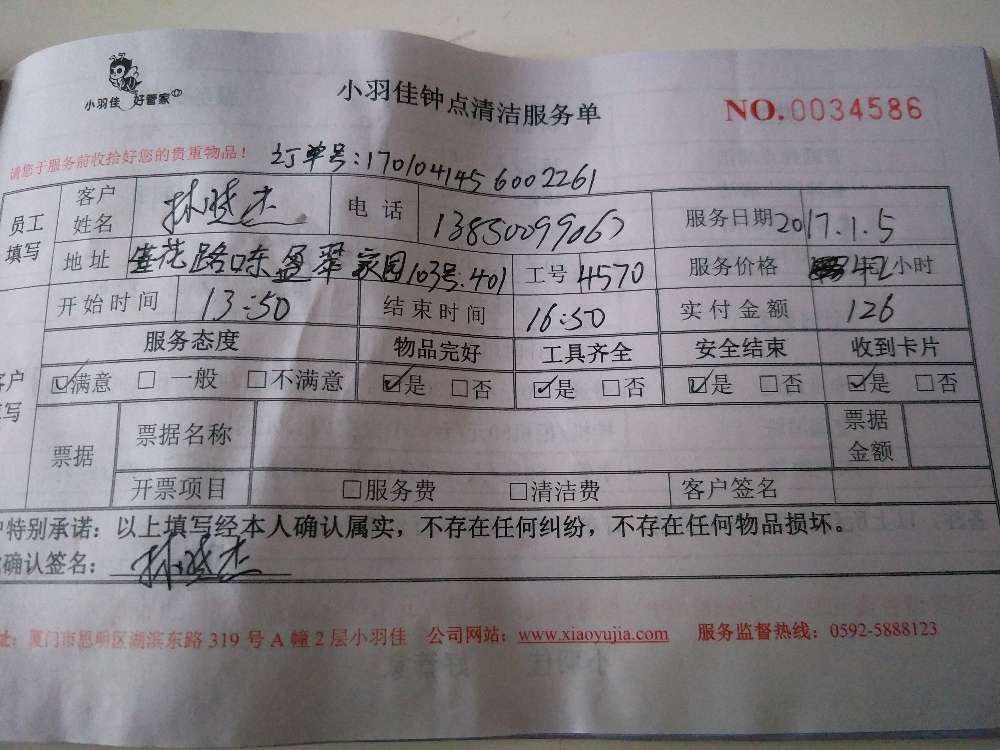 小羽佳 好管家
小羽佳钟点清洁服务单
NO.0034586
请您于服务前收拾好您的贵重物品！ 订单号:1701041456002261
员工填写 客户姓名 林 杰 电话 13850099067 服务日期 2017.1.5
地址 莲花路口东盈翠家园103号.401 工号 4570 服务价格 42 小时
开始时间 13:50 结束时间 16:50 实付金额 126
服务态度 物品完好 工具齐全 安全结束 收到卡片
客户填写 ☑满意 □一般 □不满意 ☑是 □否 ☑是 □否 ☑是 □否 ☑是 □否
票据 票据名称 票据金额
开票项目 □服务费 □清洁费 客户签名
户特别承诺：以上填写经本人确认属实，不存在任何纠纷，不存在任何物品损坏。
确认签名： 林 杰
址：厦门市思明区湖滨东路 319 号 A 幢 2 层小羽佳 公司网站：www.xiaoyujia.com 服务监督热线：0592-5888123